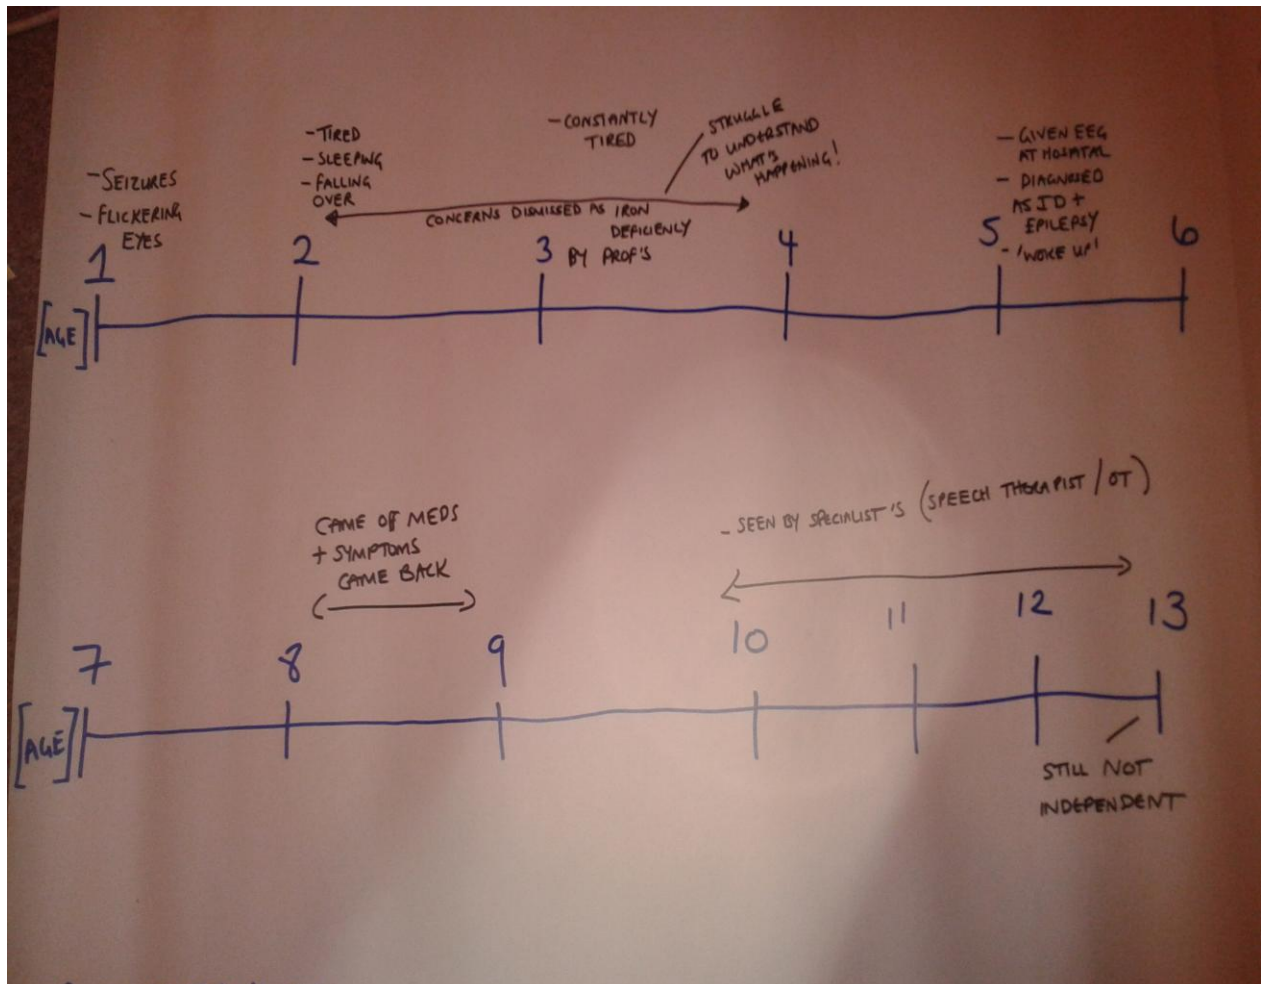 - SEIZURES
- FLICKERING
EYES
- TIRED
- SLEEPING
- FALLING
OVER
- CONSTANTLY
TIRED
STRUGGLE
TO UNDERSTAND
WHAT'S
HAPPENING!
CONCERNS DISMISSED AS IRON
DEFICIENCY
BY PROF'S
- GIVEN EEG
AT HOSPITAL
- DIAGNOSED
AS ID +
EPILEPSY
- 'WOKE UP'
1 2 3 4 5 6
[AGE]
CAME OF MEDS
+ SYMPTOMS
CAME BACK
- SEEN BY SPECIALIST'S (SPEECH THERAPIST / OT)
7 8 9 10 11 12 13
[AGE]
STILL NOT
INDEPENDENT